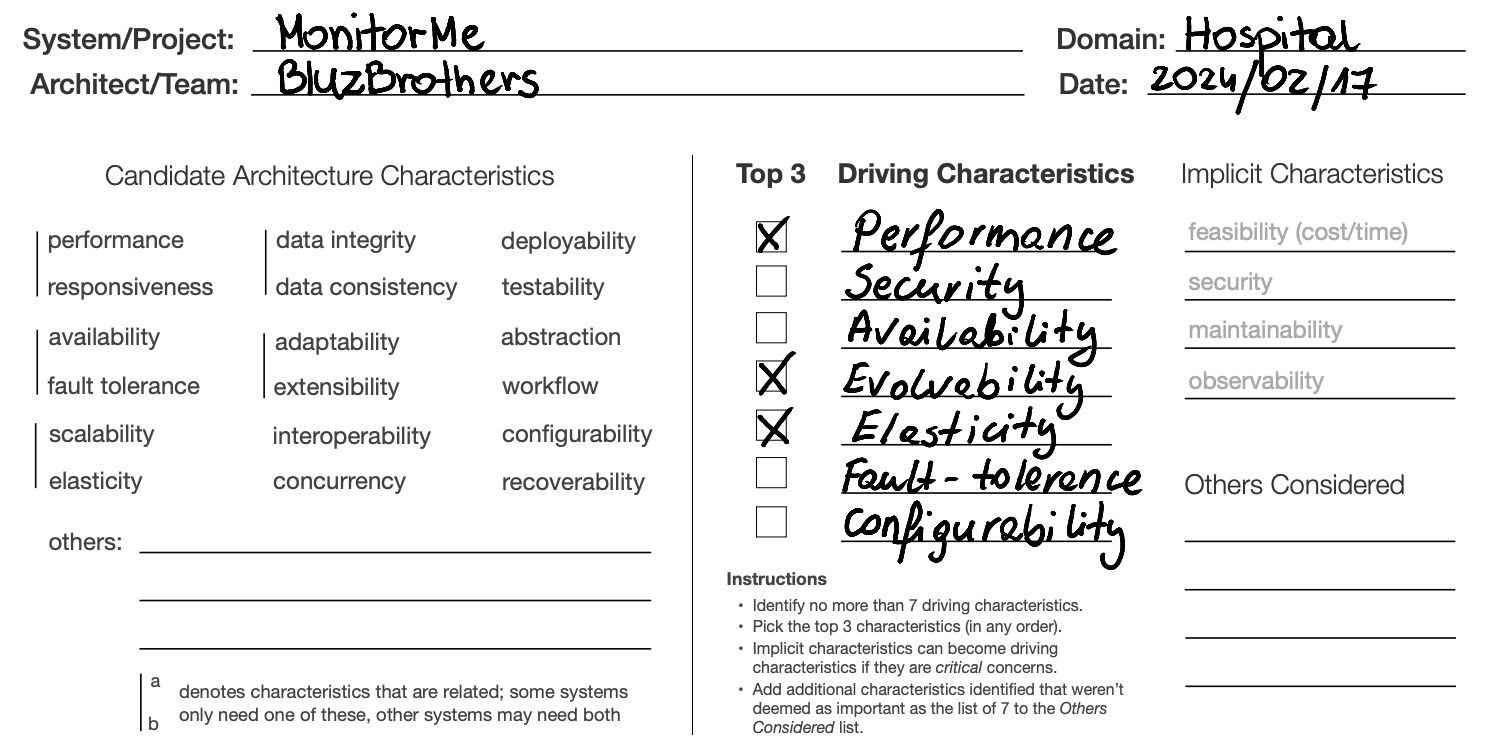 System/Project: MonitorMe
Domain: Hospital
Architect/Team: BluzBrothers
Date: 2024/02/17
Candidate Architecture Characteristics
performance
responsiveness
availability
fault tolerance
scalability
elasticity
data integrity
data consistency
adaptability
extensibility
interoperability
concurrency
deployability
testability
abstraction
workflow
configurability
recoverability
others:
a
b
denotes characteristics that are related; some systems
only need one of these, other systems may need both
Top 3 Driving Characteristics
X Performance
Security
Availability
X Evolvability
X Elasticity
Fault-tolerance
Configurability
Instructions
• Identify no more than 7 driving characteristics.
• Pick the top 3 characteristics (in any order).
• Implicit characteristics can become driving
characteristics if they are critical concerns.
• Add additional characteristics identified that weren't
deemed as important as the list of 7 to the Others
Considered list.
Implicit Characteristics
feasibility (cost/time)
security
maintainability
observability
Others Considered